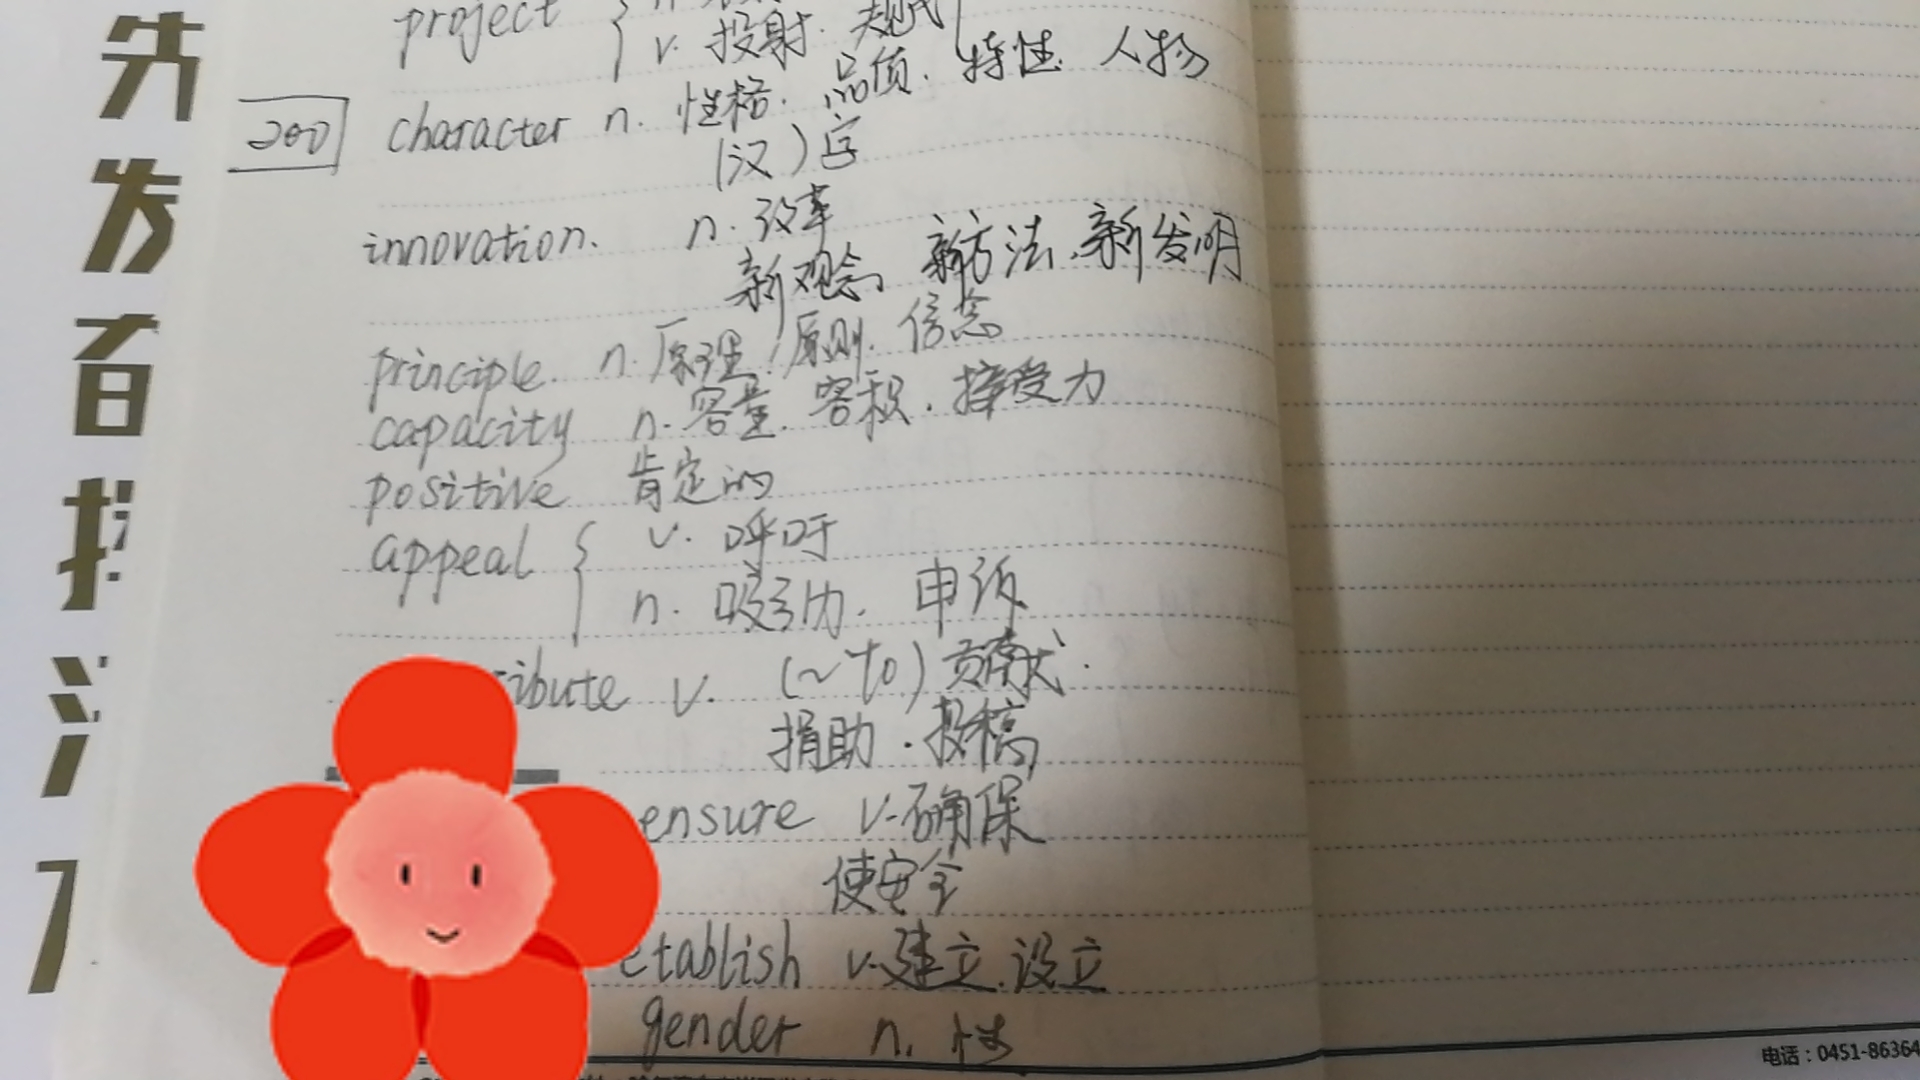 先发者控
project { n.
v. 投射. 规
200 character n. 性格. 品质. 特性. 人物
(汉)字
innovation. n. 改革
新观念, 新方法, 新发明
principle. n. 原理, 原则. 信念
capacity n. 容量. 容积. 接受力
positive 肯定的
appeal { v. 呼吁
n. 吸引力. 申诉
ibute v. (~to) 贡献.
捐助. 投稿
ensure v. 确保
使安全
etablish v. 建立. 设立
gender n. 性
电话：0451-86364